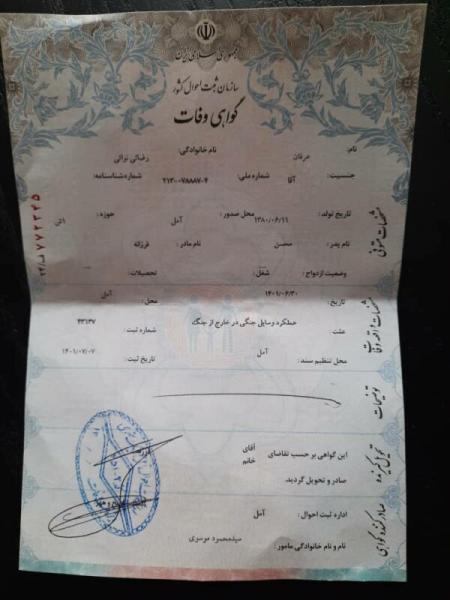 جمهوری اسلامی ایران
سازمان ثبت احوال کشور
گواهی وفات
نام: عرفان نام خانوادگی: رضائی نوائی
جنسیت: آقا شماره ملی: ۲۱۳-۰۷۸۸۸۷-۴ شماره شناسنامه:
تاریخ تولد: ۱۳۸۰/۰۶/۱۱ محل صدور: آمل حوزه:
نام پدر: محسن نام مادر: فرزانه
وضعیت ازدواج: شغل: تحصیلات:
تاریخ: ۱۴۰۱/۰۶/۳۰ محل: آمل
علت: عملکرد وسایل جنگی در خارج از جنگ شماره ثبت: ۴۳۱۳۷
محل تنظیم سند: آمل تاریخ ثبت: ۱۴۰۱/۰۷/۰۷
این گواهی بر حسب تقاضای آقای
خانم
صادر و تحویل گردید.
اداره ثبت احوال: آمل
نام و نام خانوادگی مامور: سیدمحمود موسوی
مشخصات متوفی
مشخصات واقعه وفات
توضیحات
تحویل گیرنده
صادرکننده گواهی
۷۷۲۳۴۵